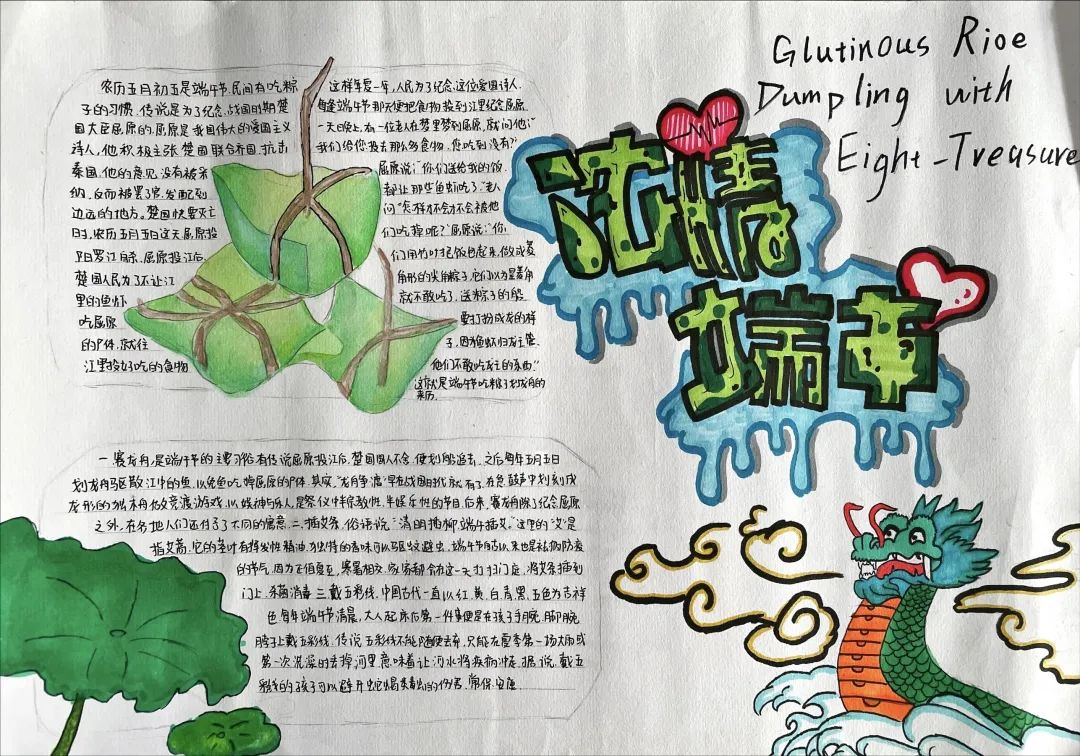 Glutinous Rioe
Dumpling with
Eight-Treasure
沉情
端午
农历五月初五是端午节,民间有吃粽
子的习惯.传说是为了纪念.战国时期楚
国大臣屈原的.屈原是我国伟大的爱国主义
诗人,他积极主张楚国联合齐国.抗击
秦国.他的意见没有被采
纳,反而被罢了官.发配到
边远的地方。楚国快要灭亡
时,农历五月五日这天屈原投
汨罗江自杀.屈原投江后.
楚国人民为了不让江
里的鱼虾
吃屈原
的尸体.就往
江里投好吃的食物
这样年复一年,人民为了纪念这位爱国诗人.
每逢端午节那天便把食物投到江里纪念屈原
一天晚上,有一位老人在梦里梦到屈原,就问他:"
我们给您投去那么多食物,您吃到没有?"
屈原说:"你们送给我的饭.
都让那些鱼虾吃了."老人
问"怎样才不会才不会被他
们吃掉呢?"屈原说:"你
们用竹叶把饭包起来,做成菱
角形的尖角粽子,它们以为是菱角
就不敢吃了.送粽子的船
要打扮成龙的样
子,因鱼虾归龙王管.
他们不敢吃龙王的东西."
这就是端午节吃粽子划龙舟的
来历.
一.赛龙舟,是端午节的主要习俗有传说屈原投江后,楚国国人不舍,便划船追去.之后每年五月五日
划龙舟驱散江中的鱼,以免鱼吃掉屈原的尸体.其实,"龙舟争渡"早在战国时代就有了.在急鼓声中划刻成
龙形的独木舟做竞渡游戏.以娱神与乐人,是祭仪中半宗教性.半娱乐性的节目.后来,赛龙舟除了纪念屈原
之外,在各地人们还付予了不同的寓意.二.插艾条.俗语说:"清明插柳.端午插艾."这里的"艾"是
指艾蒿.它的茎叶有挥发性精油.独特的香味可以驱蚊避虫.端午节自古以来也是祛病防疫
的节气.因为正值夏至,寒暑相交.家家都会在这一天打扫门庭.将艾条插到
门上.杀菌消毒.三.戴五彩线.中国古代一直以红.黄.白.青.黑.五色为吉祥
色.每年端午节清晨,大人起床后第一件事便是在孩子手腕.脚腕.
脖子上戴五彩线.传说五彩线不能随便丢弃.只能在夏季第一场大雨或
第一次洗澡时丢掉河里.意味着让河水将疾病冲走.据说.戴五
彩线的孩子可以避开蛇蝎类毒虫的伤害.常保安康